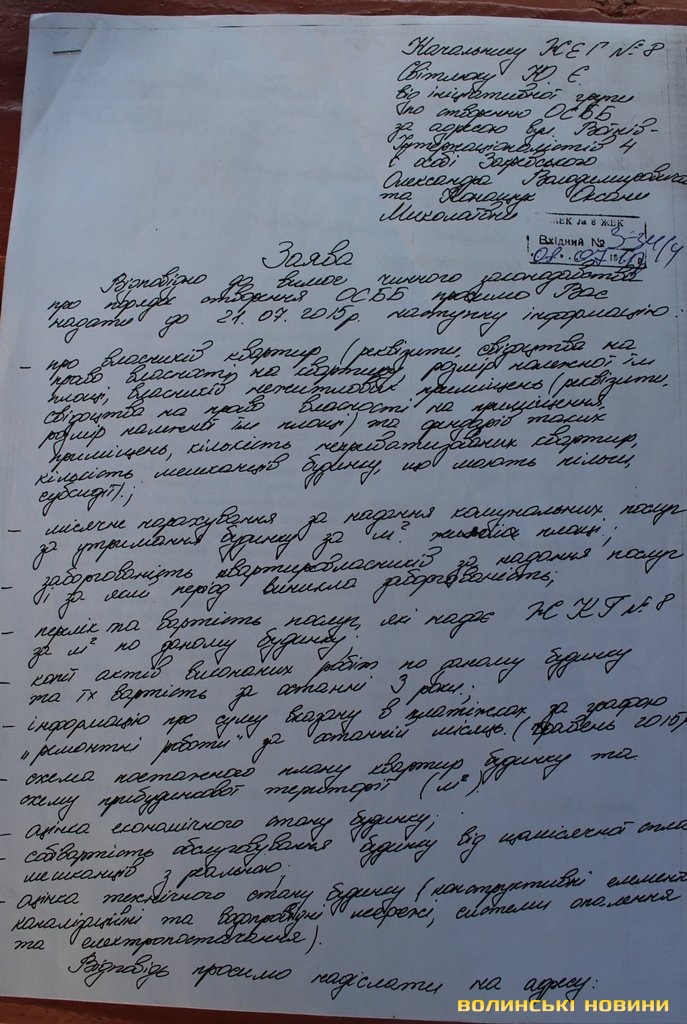 Начальнику ЖЕГ №8
Світлюку Ю. Є.
від ініціативної групи
по створенню ОСББ
за адресою вул. Воїнів-
Інтернаціоналістів 4
в особі
Олександра Володимировича
та Оксани
Миколаївни
ЖЕК № 8 ЖЕК
Вхідний №
Заява
Відповідно до вимог чинного законодавства
про порядок створення ОСББ просимо Вас
надати до 21.07.2015р. наступну інформацію:
- про власників квартир (реквізити свідоцтва на
право власності на квартиру, розмір належної їм
площі, власників нежитлових приміщень (реквізити,
свідоцтва на право власності на приміщення,
розмір належної їм площі) та орендарів таких
приміщень, кількість неприватизованих квартир,
кількість мешканців будинку, що мають пільги,
субсидії).;
- місячне нарахування за надання комунальних послуг
за утримання будинку за м² площі;
- заборгованість квартировласників за надання послуг
і за який період виникла заборгованість;
- перелік та вартість послуг, які надає ЖКП №8
за м² по даному будинку;
- копії актів виконаних робіт по даному будинку
та їх вартість за останні 3 роки.;
- інформацію про суму вказану в платіжках за графою
„ремонтні роботи" за останній місяць. (травень 2015р
- схема поетажного плану квартир будинку та
схему прибудинкової території (м²)
- оцінка економічного стану будинку;
- собвартість обслуговування будинку від щомісячної спла
мешканців з реальною;
- оцінка технічного стану будинку (конструктивні елемент
каналізаційні та водопровідні мережі, системи опалення
та електропостачання).
Відповідь просимо надіслати на адресу:
ВОЛИНСЬКІ НОВИНИ